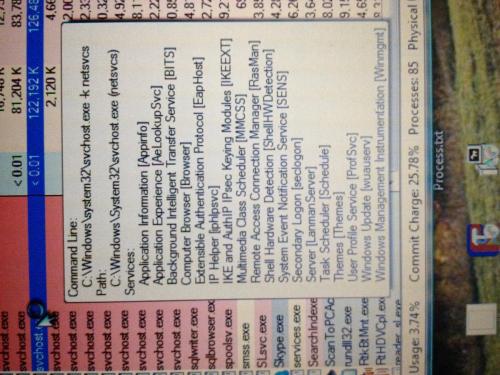 svchost.exe
svchost.exe
svchost.exe
svchost.exe
sqlwriter.exe
sqlbrowser.exe
spoolsv.exe
smss.exe
SLsvc.exe
Skype.exe
services.exe
SearchIndexe
ScanToPCAc
rundll32.exe
RtkBtMnt.exe
RtHDVCpl.exe
reader_sl.exe
< 0.01 81,204 K 83,78
< 0.01 122,192 K 126,48
2,120 K 4,66
Command Line:
C:\Windows\system32\svchost.exe -k netsvcs
Path:
C:\Windows\System32\svchost.exe (netsvcs)
Services:
Application Information [Appinfo]
Application Experience [AeLookupSvc]
Background Intelligent Transfer Service [BITS]
Computer Browser [Browser]
Extensible Authentication Protocol [EapHost]
IP Helper [iphlpsvc]
IKE and AuthIP IPsec Keying Modules [IKEEXT]
Multimedia Class Scheduler [MMCSS]
Remote Access Connection Manager [RasMan]
Shell Hardware Detection [ShellHWDetection]
System Event Notification Service [SENS]
Secondary Logon [seclogon]
Server [LanmanServer]
Task Scheduler [Schedule]
Themes [Themes]
User Profile Service [ProfSvc]
Windows Update [wuauserv]
Windows Management Instrumentation [Winmgmt]
Usage: 3.74% Commit Charge: 25.78% Processes: 85 Physical
Process.txt